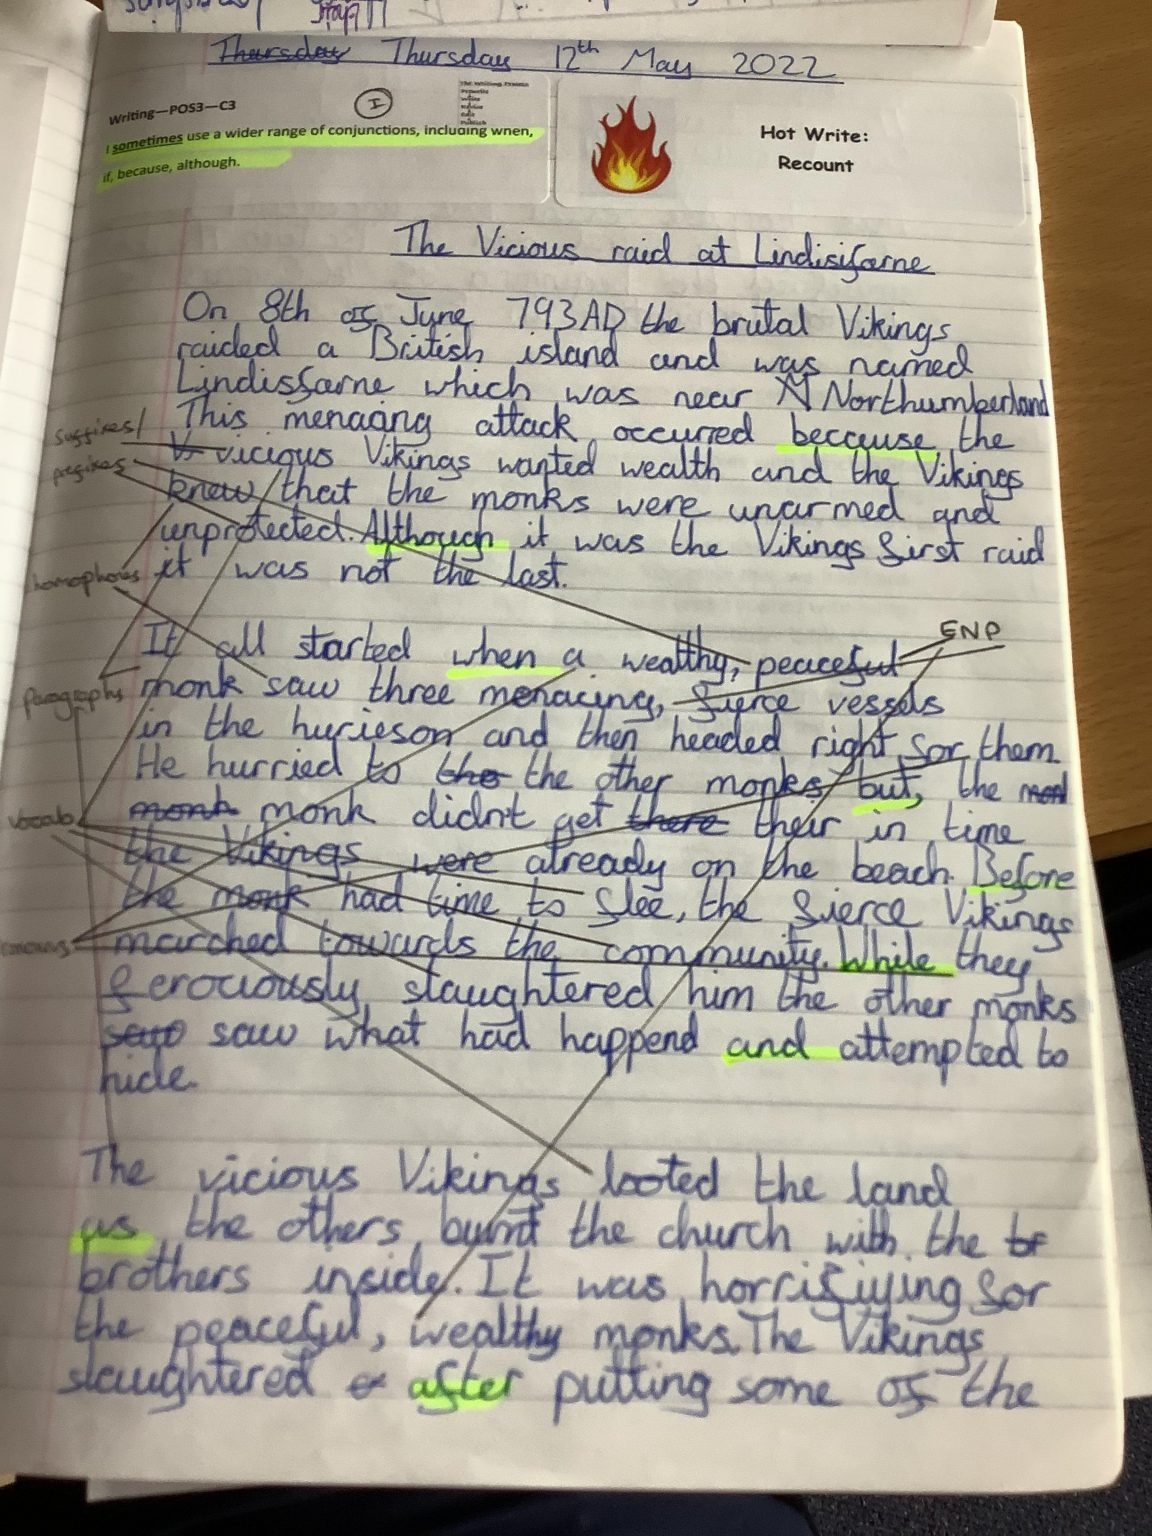 Thursday Thursday 12th May 2022
Writing—POS3—C3
I
The Writing Process
I sometimes use a wider range of conjunctions, including when,
if, because, although.
Hot Write:
Recount
The Vicious raid at Lindisifarne
On 8th of June 793AD the brutal Vikings
raided a British island and was named
Lindissarne which was near N Northumberland
This menacing attack occurred beccause the
V vicious Vikings wanted wealth and the Vikings
knew that the monks were unarmed and
unprotected. Although it was the Vikings first raid
it was not the last.
It all started when a wealthy, peaceful
monk saw three menacing, fierce vessels
in the hurieson and then headed right for them
He hurried to the the other monks but, the
monk monk didn't get there their in time
the Vikings were already on the beach. Before
the monk had time to flee, the fierce Vikings
marched towards the community. While they
ferociously slaughtered him the other monks
saw what had happend and attempted to
hide.
The vicious Vikings looted the land
as the others burnt the church with the br
brothers inside. It was horrifiying for
the peaceful, wealthy monks. The Vikings
slaughtered after putting some of the
suffixes/
prefixes
homophones
paragraphs
vocab
ENP